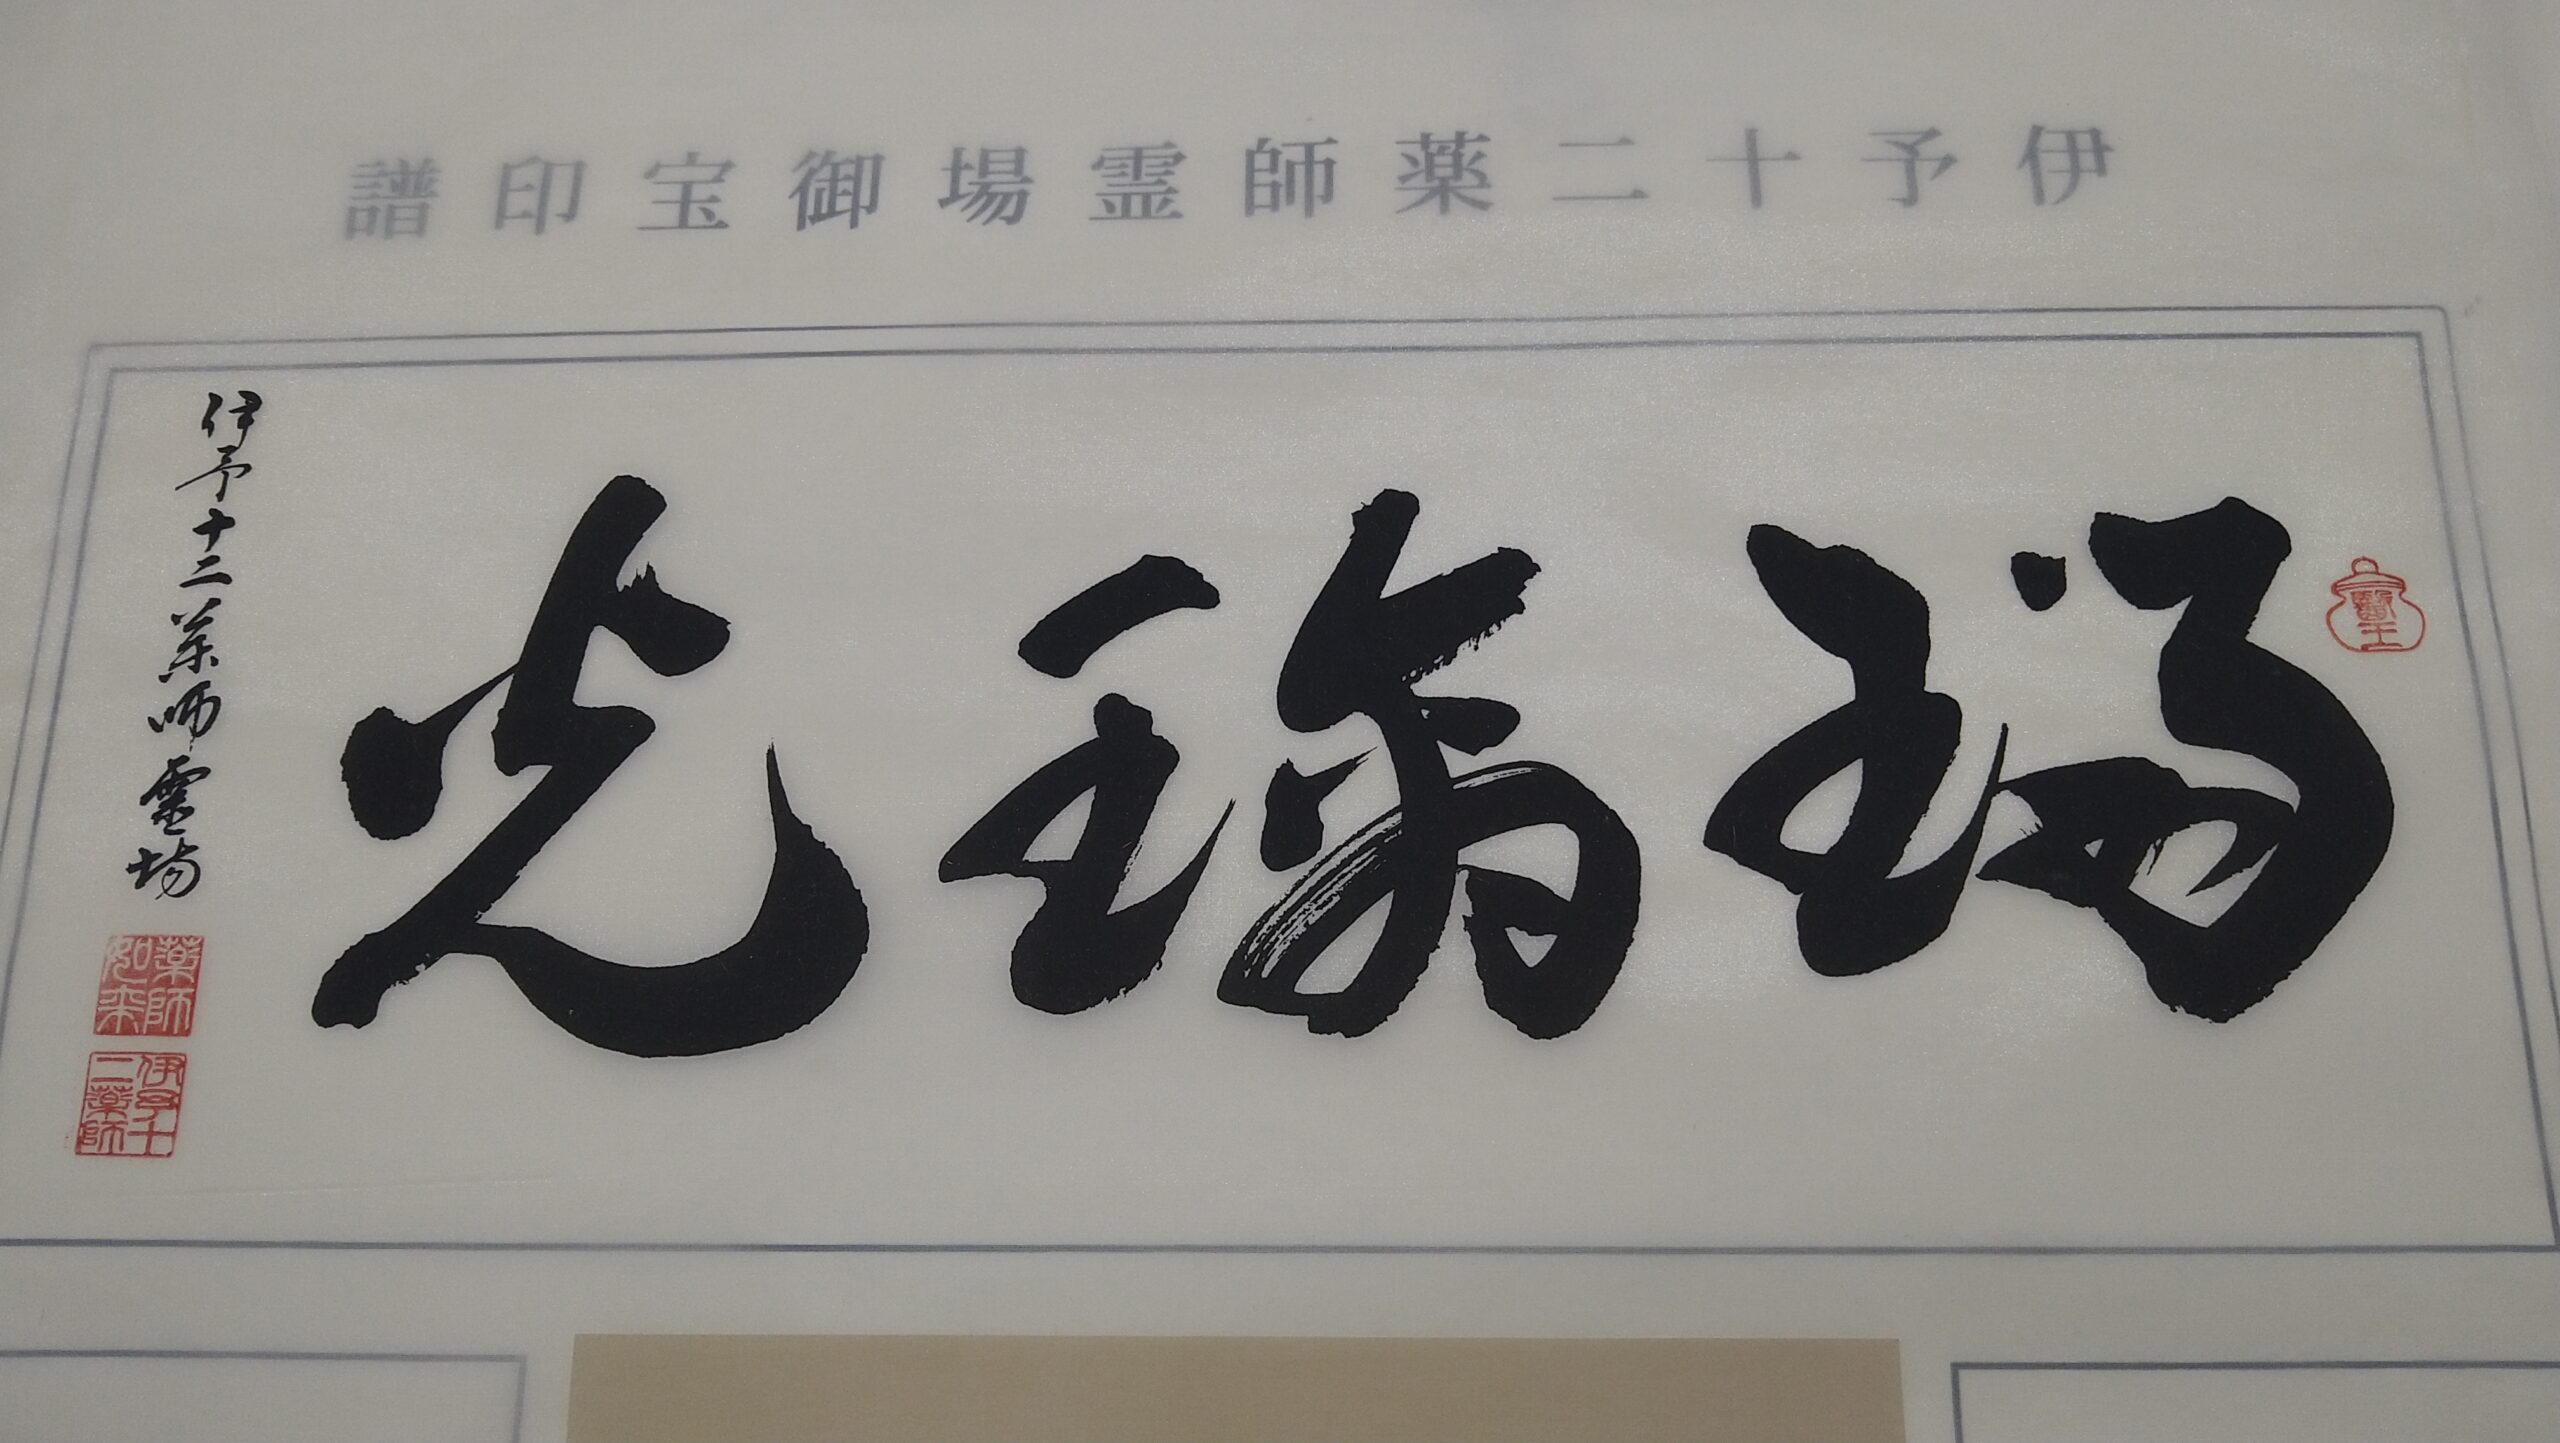 伊予十二薬師霊場御宝印譜
醫王
瑠璃光
伊予十二薬師霊場
薬師
如来
伊予十
二薬師